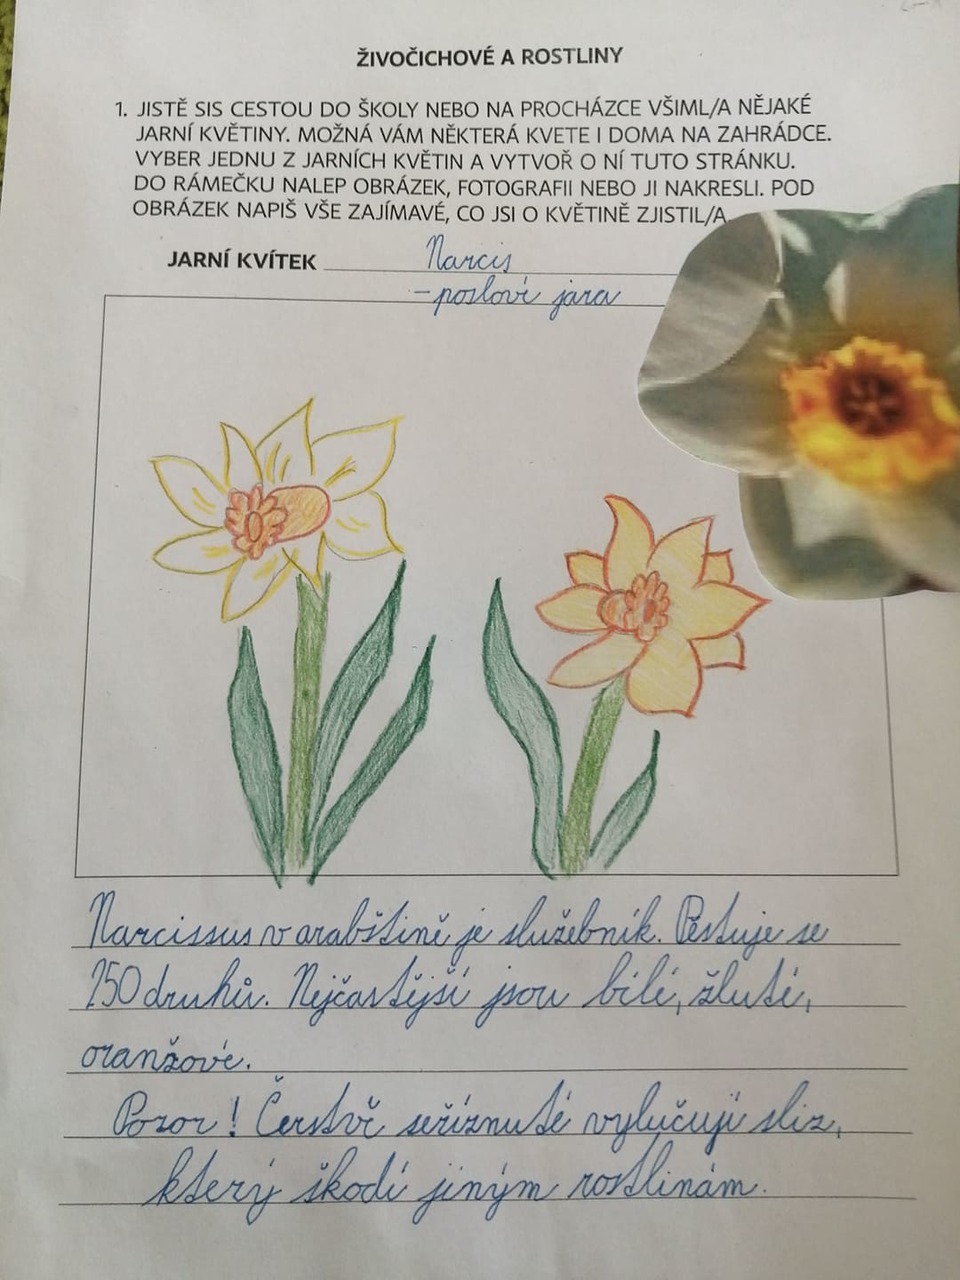 ŽIVOČICHOVÉ A ROSTLINY
1. JISTĚ SIS CESTOU DO ŠKOLY NEBO NA PROCHÁZCE VŠIML/A NĚJAKÉ
JARNÍ KVĚTINY. MOŽNÁ VÁM NĚKTERÁ KVETE I DOMA NA ZAHRÁDCE.
VYBER JEDNU Z JARNÍCH KVĚTIN A VYTVOŘ O NÍ TUTO STRÁNKU.
DO RÁMEČKU NALEP OBRÁZEK, FOTOGRAFII NEBO JI NAKRESLI. POD
OBRÁZEK NAPIŠ VŠE ZAJÍMAVÉ, CO JSI O KVĚTINĚ ZJISTIL/A
JARNÍ KVÍTEK Narcis
- poslové jara
Narcissus v arabštině je služebník. Pěstuje se
250 druhů. Nejčastější jsou bílé, žluté,
oranžové.
Pozor! Čerstvě seříznuté vylučují sliz,
který škodí jiným rostlinám.